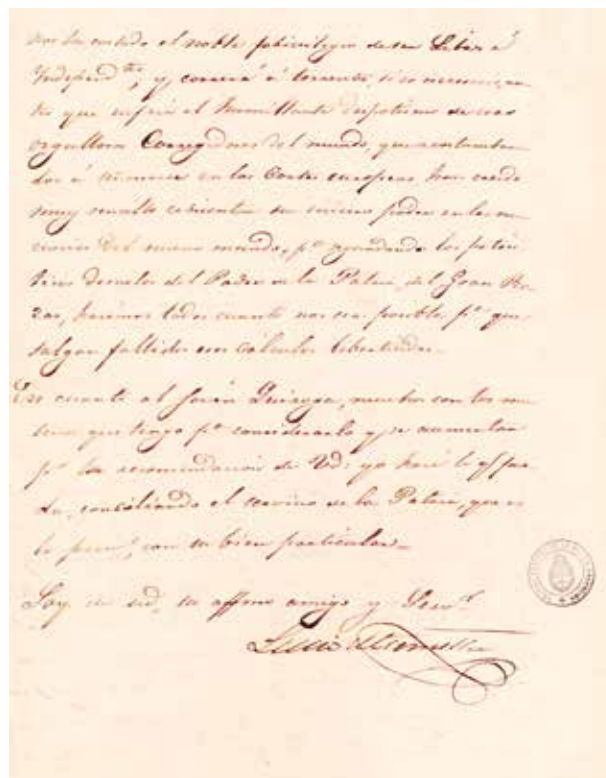 nos ha costado el noble privilegio de ser Libres é
Independ.tes, y correrá á torrentes, si es necesario, an-
tes que sufrir el humillante despotismo de esos
orgullosos Corregidores del mundo, que acostumbra-
dos á en las Cortes europeas han creido
muy sencillo su poder en las na-
ciones del nuevo mundo, p.o ayudando los
desvelos del Padre de la Patria, del Gran Ro-
sas, haremos todos cuanto nos sea posible p.a que
salgan fallidos sus cálculos liberticidas.
En cuanto al Joven Quiroga, muchos son los mo-
tivos que tengo p.a considerarlo y se aumentan
p.r la recomendacion de Vd: yo haré lo q.e pue-
da, conciliando el servicio de la Patria, que es
lo prim.o, con su bien particular.
Soy de Vd. su affmo amigo y Serv.r